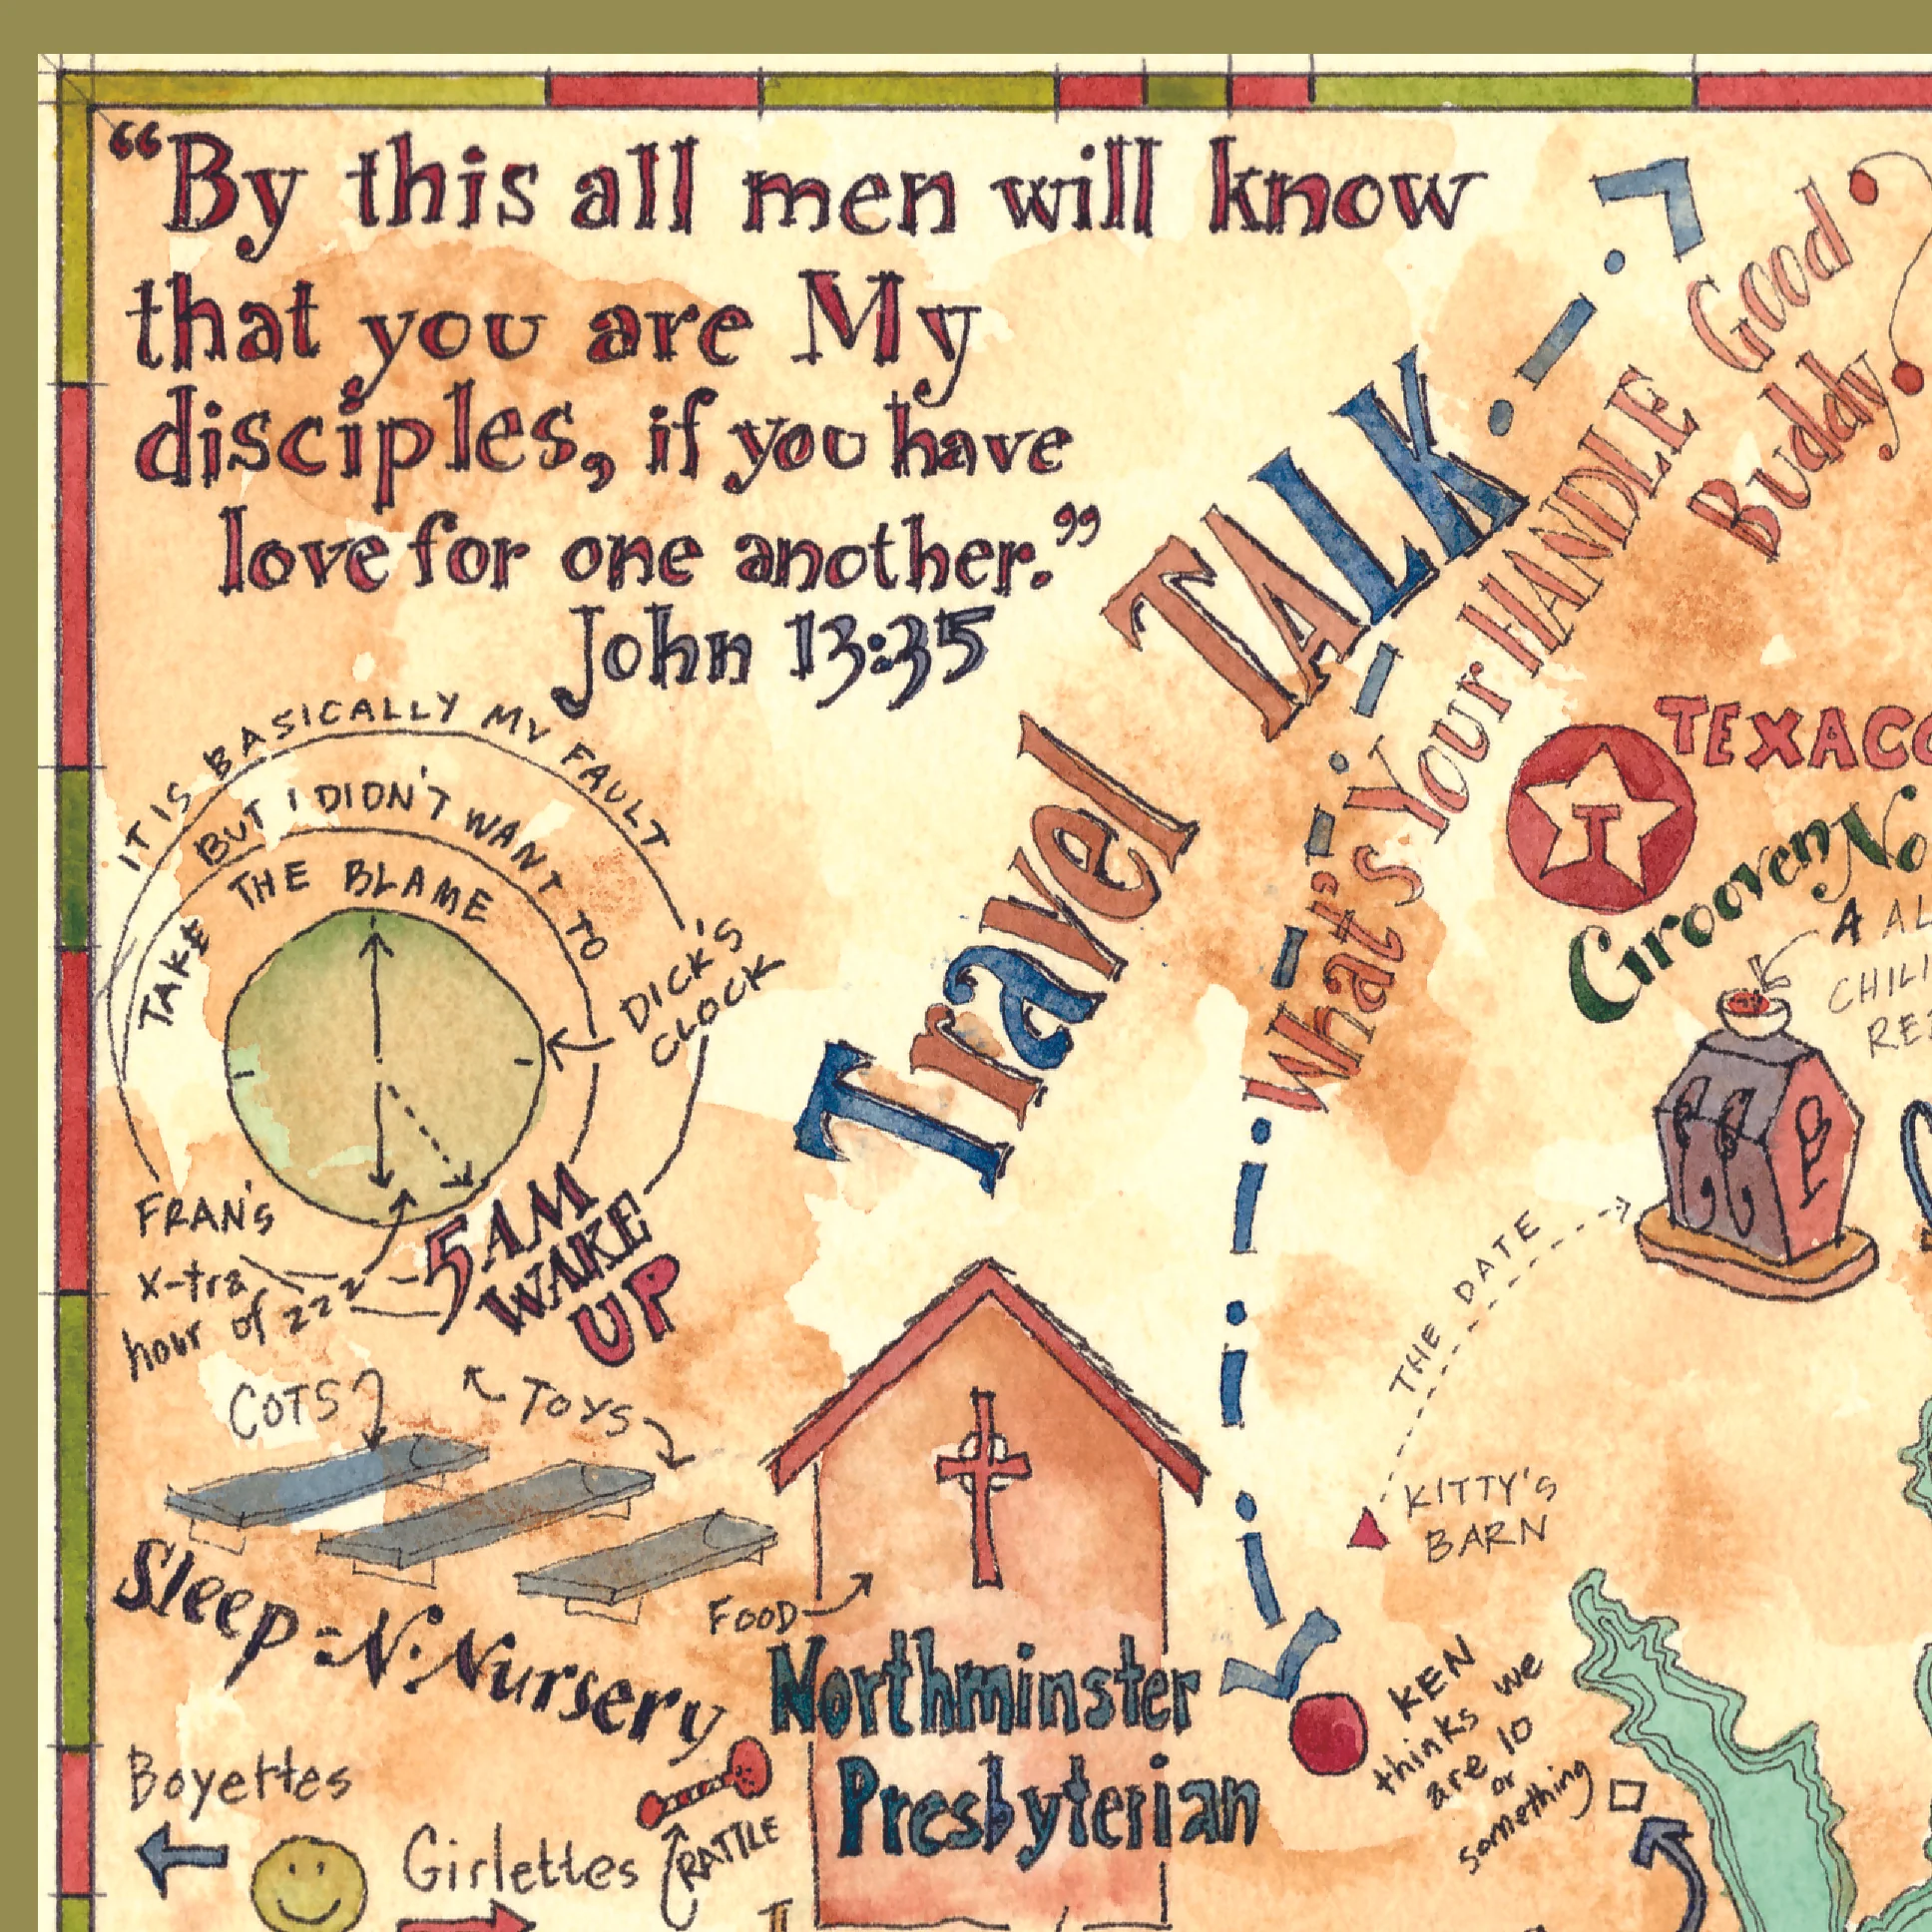 “By this all men will know
that you are My
disciples, if you have
love for one another.”
John 13:35
Travel TALK
What's Your HANDLE Good
Buddy
IT IS BASICALLY MY FAULT
BUT I DIDN'T WANT TO
TAKE THE BLAME
DICK'S
CLOCK
FRAN'S
x-tra
hour of zzz
5 AM
WAKE
UP
TEXACO
T
Grooven No
A AL
CHILI
RE
THE DATE
KITTY'S
BARN
COTS
TOYS
Sleep-N-Nursery
FOOD
Northminster
Presbyterian
KEN
thinks we
are 10
or
something
Boyettes
Girlettes
RATTLE